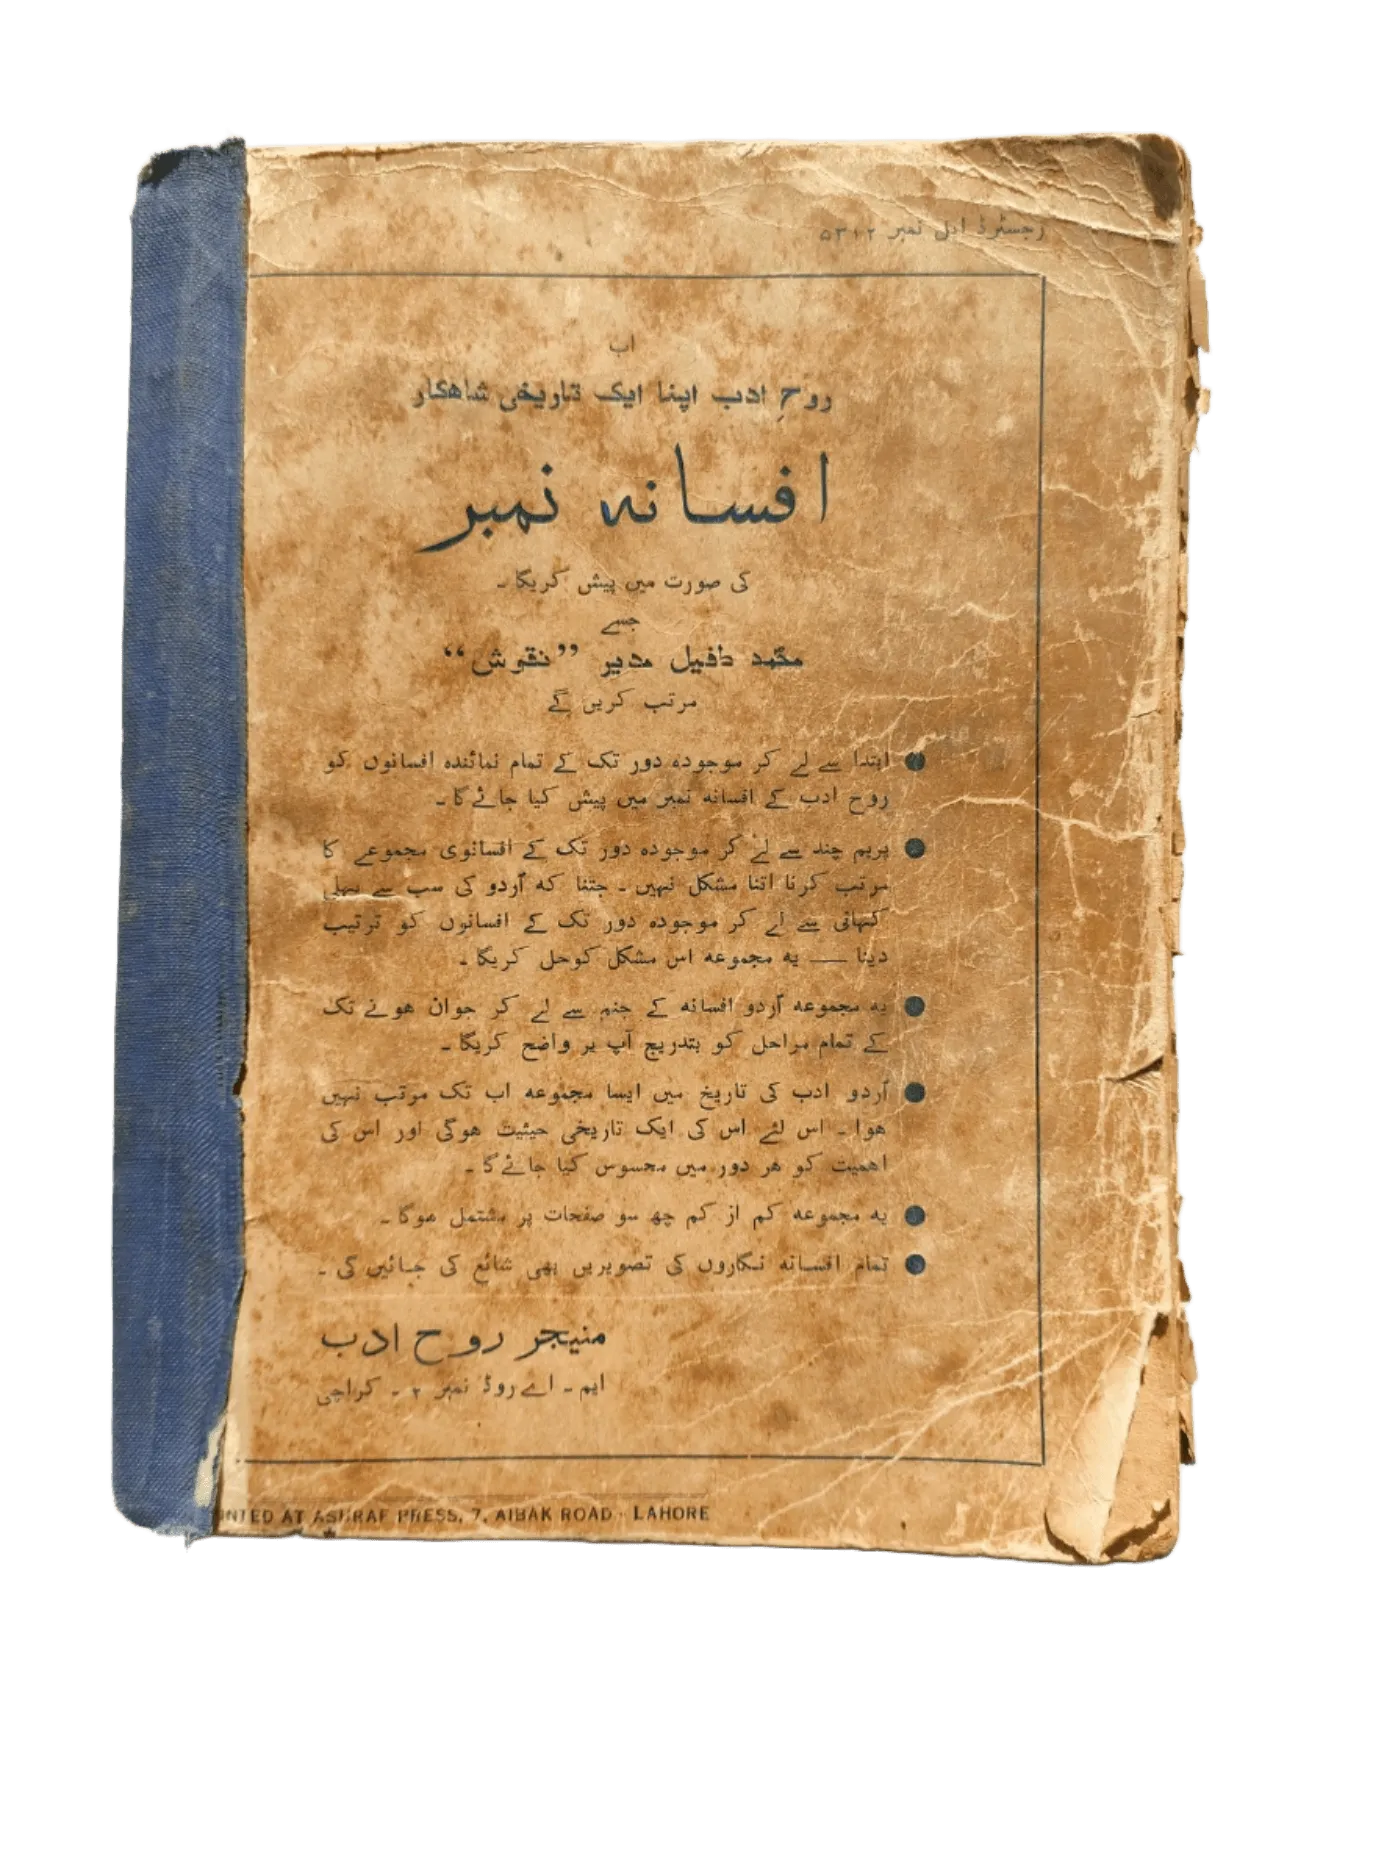 رجسٹرڈ ایل نمبر ۵۳۱۲
اب
روحِ ادب اپنا ایک تاریخی شاهکار
افسانہ نمبر
کی صورت میں پیش کریگا ۔
جسے
محمّد طفیل مدیر ”نقوش“
مرتب کریں گے
● ابتدا سے لے کر موجودہ دور تک کے تمام نمائندہ افسانوں کو
روح ادب کے افسانہ نمبر میں پیش کیا جائےگا ۔
● پریم چند سے لے کر موجودہ دور تک کے افسانوی مجموعے کا
مرتب کرنا اتنا مشکل نہیں ۔ جتنا کہ اُردو کی سب سے پہلی
کہانی سے لے کر موجودہ دور تک کے افسانوں کو ترتیب
دینا — یہ مجموعہ اس مشکل کوحل کریگا ۔
● یہ مجموعہ اُردو افسانہ کے جنم سے لے کر جوان هونے تک
کے تمام مراحل کو بتدریج آپ پر واضح کریگا ۔
● اُردو ادب کی تاریخ میں ایسا مجموعہ اب تک مرتب نہیں
هوا ۔ اس لئے اس کی ایک تاریخی حیثیت هوگی اور اس کی
اهمیت کو هر دور میں محسوس کیا جائےگا ۔
● یہ مجموعہ کم از کم چھ سو صفحات پر مشتمل هوگا ۔
● تمام افسانہ نگاروں کی تصویریں بھی شائع کی جائیں گی ۔
منیجر روح ادب
ایم ۔ اے روڈ نمبر ۲ ۔ کراچی
INTED AT ASHRAF PRESS, 7, AIBAK ROAD - LAHORE